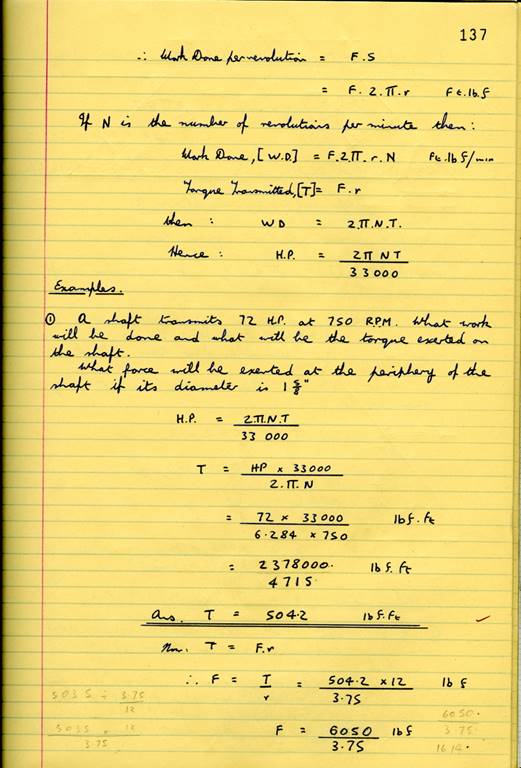 137
∴ Work Done per revolution = F.S
= F. 2.π.r Ft.lb.f
If N is the number of revolutions per minute then:
Work Done, [W.D.] = F.2π.r.N Ft.lbf/min
Torque Transmitted, [T] = F.r
then : WD = 2.π.N.T.
Hence : H.P. = 2π NT
33000
Examples.
① A shaft transmits 72 H.P. at 750 R.P.M. What work
will be done and what will be the torque exerted on
the shaft.
What force will be exerted at the periphery of the
shaft if its diameter is 1 5/8"
H.P. = 2.π.N.T
33 000
T = HP x 33000
2.π.N
= 72 x 33000 lbf.ft
6.284 x 750
= 2378000. lbf.ft
4715
Ans. T = 504.2 lbf.ft
Now. T = F.r
∴ F = T = 504.2 x 12 lbf
r 3.75
5035 ÷ 3.75
12
F = 6050 lbf
3.75
5035 x 12
3.75
6050.
3.75
1614.